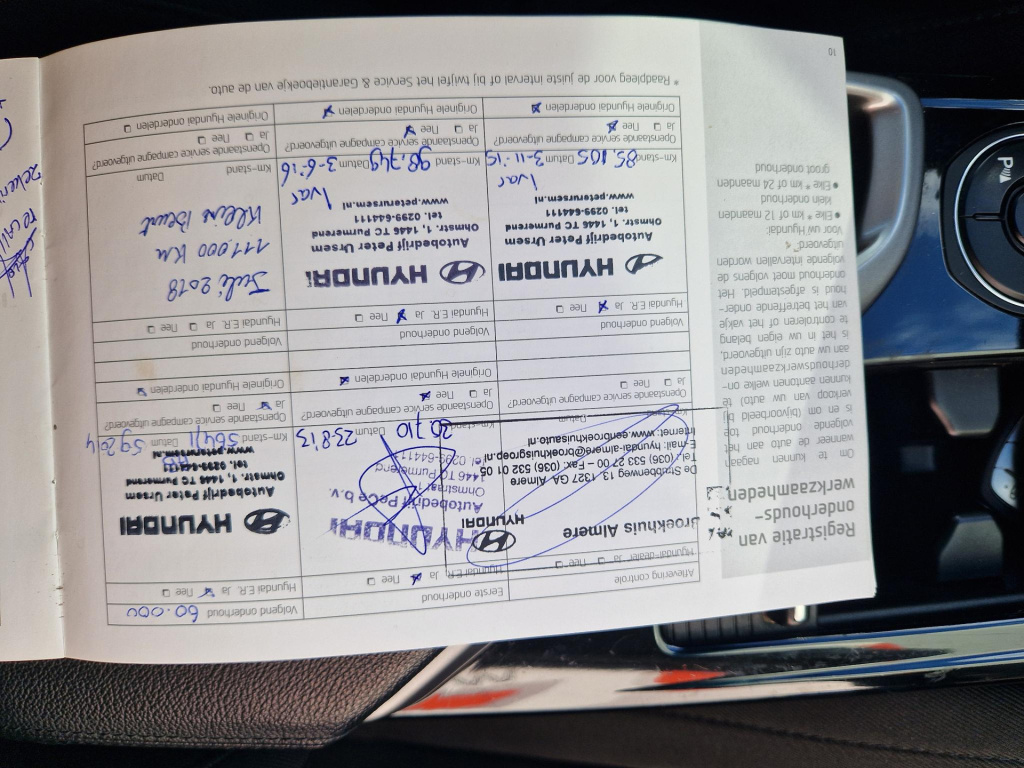 Registratie van
onderhouds-
werkzaamheden
Om te kunnen nagaan
wanneer de auto aan het
volgende onderhoud toe
is en om bijvoorbeeld bij
verkoop van uw auto te
kunnen aantonen welke on-
derhoudswerkzaamheden
aan uw auto zijn uitgevoerd,
is het in uw eigen belang
te controleren of het vakje
van het betreffende onder-
houd is afgestempeld. Het
onderhoud moet volgens de
volgende intervallen worden
uitgevoerd
voor uw Hyundai:
• Elke * km of 12 maanden
klein onderhoud
• Elke * km of 24 maanden
groot onderhoud
10
Aflevering controle
Hyundai-dealer Ja Nee
Broekhuis Almere
HYUNDAI
De Strubbenweg 13, 1327 GA Almere
Tel. (036) 533 27 00 – Fax: (036) 532 01 05
E-mail: hyundai-almere@broekhuisgroep.nl
Internet: www.eenbroekhuisauto.nl
Datum
Openstaande service campagne uitgevoerd?
Ja Nee
Eerste onderhoud
Hyundai E.R. Ja Nee
HYUNDAI
Autobedrijf PeCe b.v.
Ohmstraat 1
1446 TC Purmerend
Tel. 0299-644111
Km-stand 20.710 Datum 23.8'13
Openstaande service campagne uitgevoerd?
Ja Nee
Originele Hyundai onderdelen
Volgend onderhoud 60.000
Hyundai E.R. Ja Nee
HYUNDAI
Autobedrijf Peter Ursem
Ohmstr. 1, 1446 TC Purmerend
tel. 0299-644111
www.peterursem.nl
Km-stand 56411 Datum
Openstaande service campagne uitgevoerd?
Ja Nee
Originele Hyundai onderdelen
Volgend onderhoud
Hyundai E.R. Ja Nee
HYUNDAI
Autobedrijf Peter Ursem
Ohmstr. 1, 1446 TC Purmerend
tel. 0299-644111
www.peterursem.nl
Ivar
Km-stand 85.105 Datum 3-11-'15
Openstaande service campagne uitgevoerd?
Ja Nee
Originele Hyundai onderdelen
Volgend onderhoud
Hyundai E.R. Ja Nee
HYUNDAI
Autobedrijf Peter Ursem
Ohmstr. 1, 1446 TC Purmerend
tel. 0299-644111
www.peterursem.nl
Ivar
Km-stand 98.749 Datum 3-6-'16
Openstaande service campagne uitgevoerd?
Ja Nee
Originele Hyundai onderdelen
Volgend onderhoud
Hyundai E.R. Ja Nee
Juli 2018
111.000 Km
Kleine Beurt
Km-stand Datum
Openstaande service campagne uitgevoerd?
Ja Nee
Originele Hyundai onderdelen
* Raadpleeg voor de juiste interval of bij twijfel het Service & Garantieboekje van de auto.
P